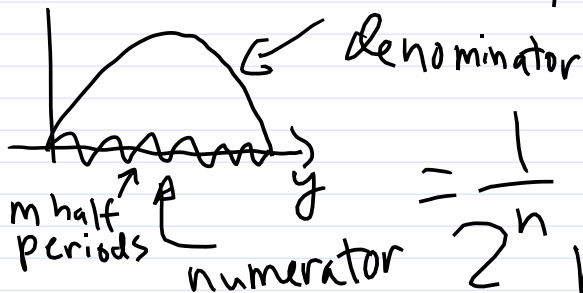 denominator
y
m half
periods
numerator
= 1/2^n